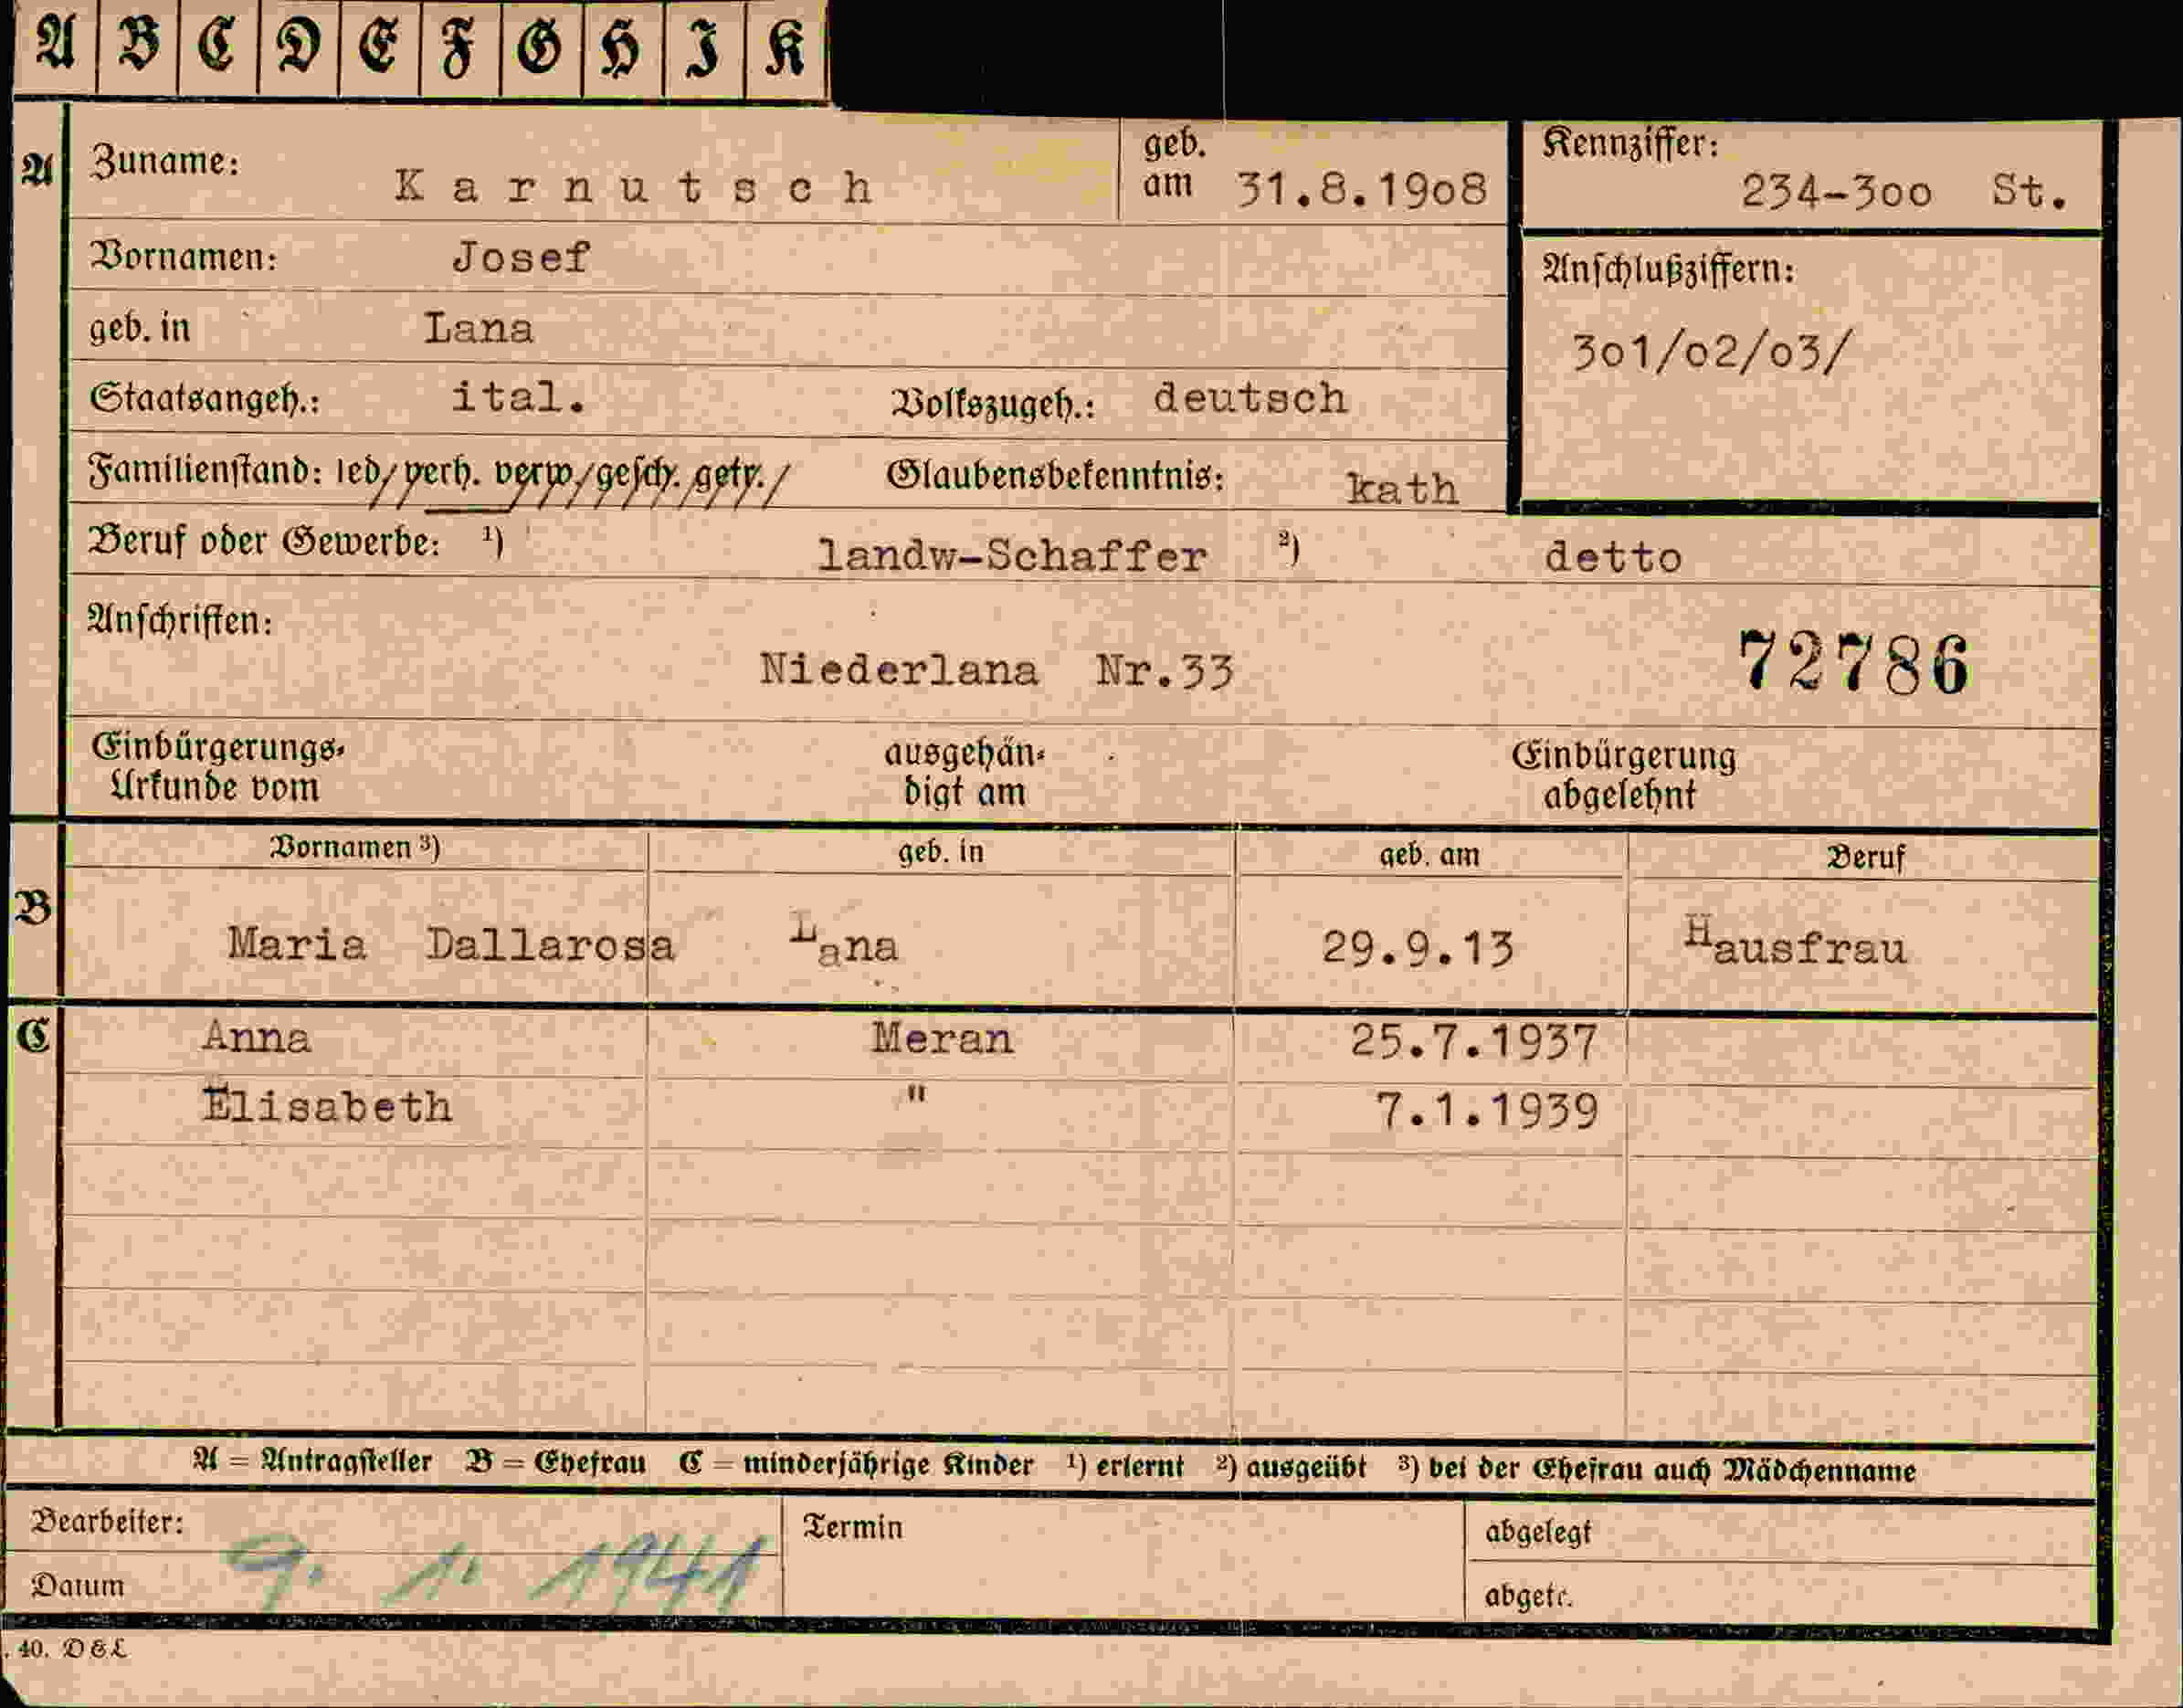 A B C D E F G H I K
A Zuname: Karnutsch geb. am 31.8.1908 Kennziffer: 234-300 St.
Vornamen: Josef Anschlußziffern:
geb. in Lana 301/02/03/
Staatsangeh.: ital. Volkszugeh.: deutsch
Familienstand: led/verh. verw/gesch. getr./ Glaubensbekenntnis: kath
Beruf oder Gewerbe: ¹) landw-Schaffer ²) detto
Anschriften:
Niederlana Nr.33 72786
Einbürgerungs- ausgehän- Einbürgerung
Urkunde vom digt am abgelehnt
Vornamen ³) geb. in geb. am Beruf
B Maria Dallarosa Lana 29.9.13 Hausfrau
C Anna Meran 25.7.1937
Elisabeth " 7.1.1939
A = Antragsteller B = Ehefrau C = minderjährige Kinder ¹) erlernt ²) ausgeübt ³) bei der Ehefrau auch Mädchenname
Bearbeiter: Termin abgelegt
Datum 9. 1. 1941 abgetr.
. 40. D&L